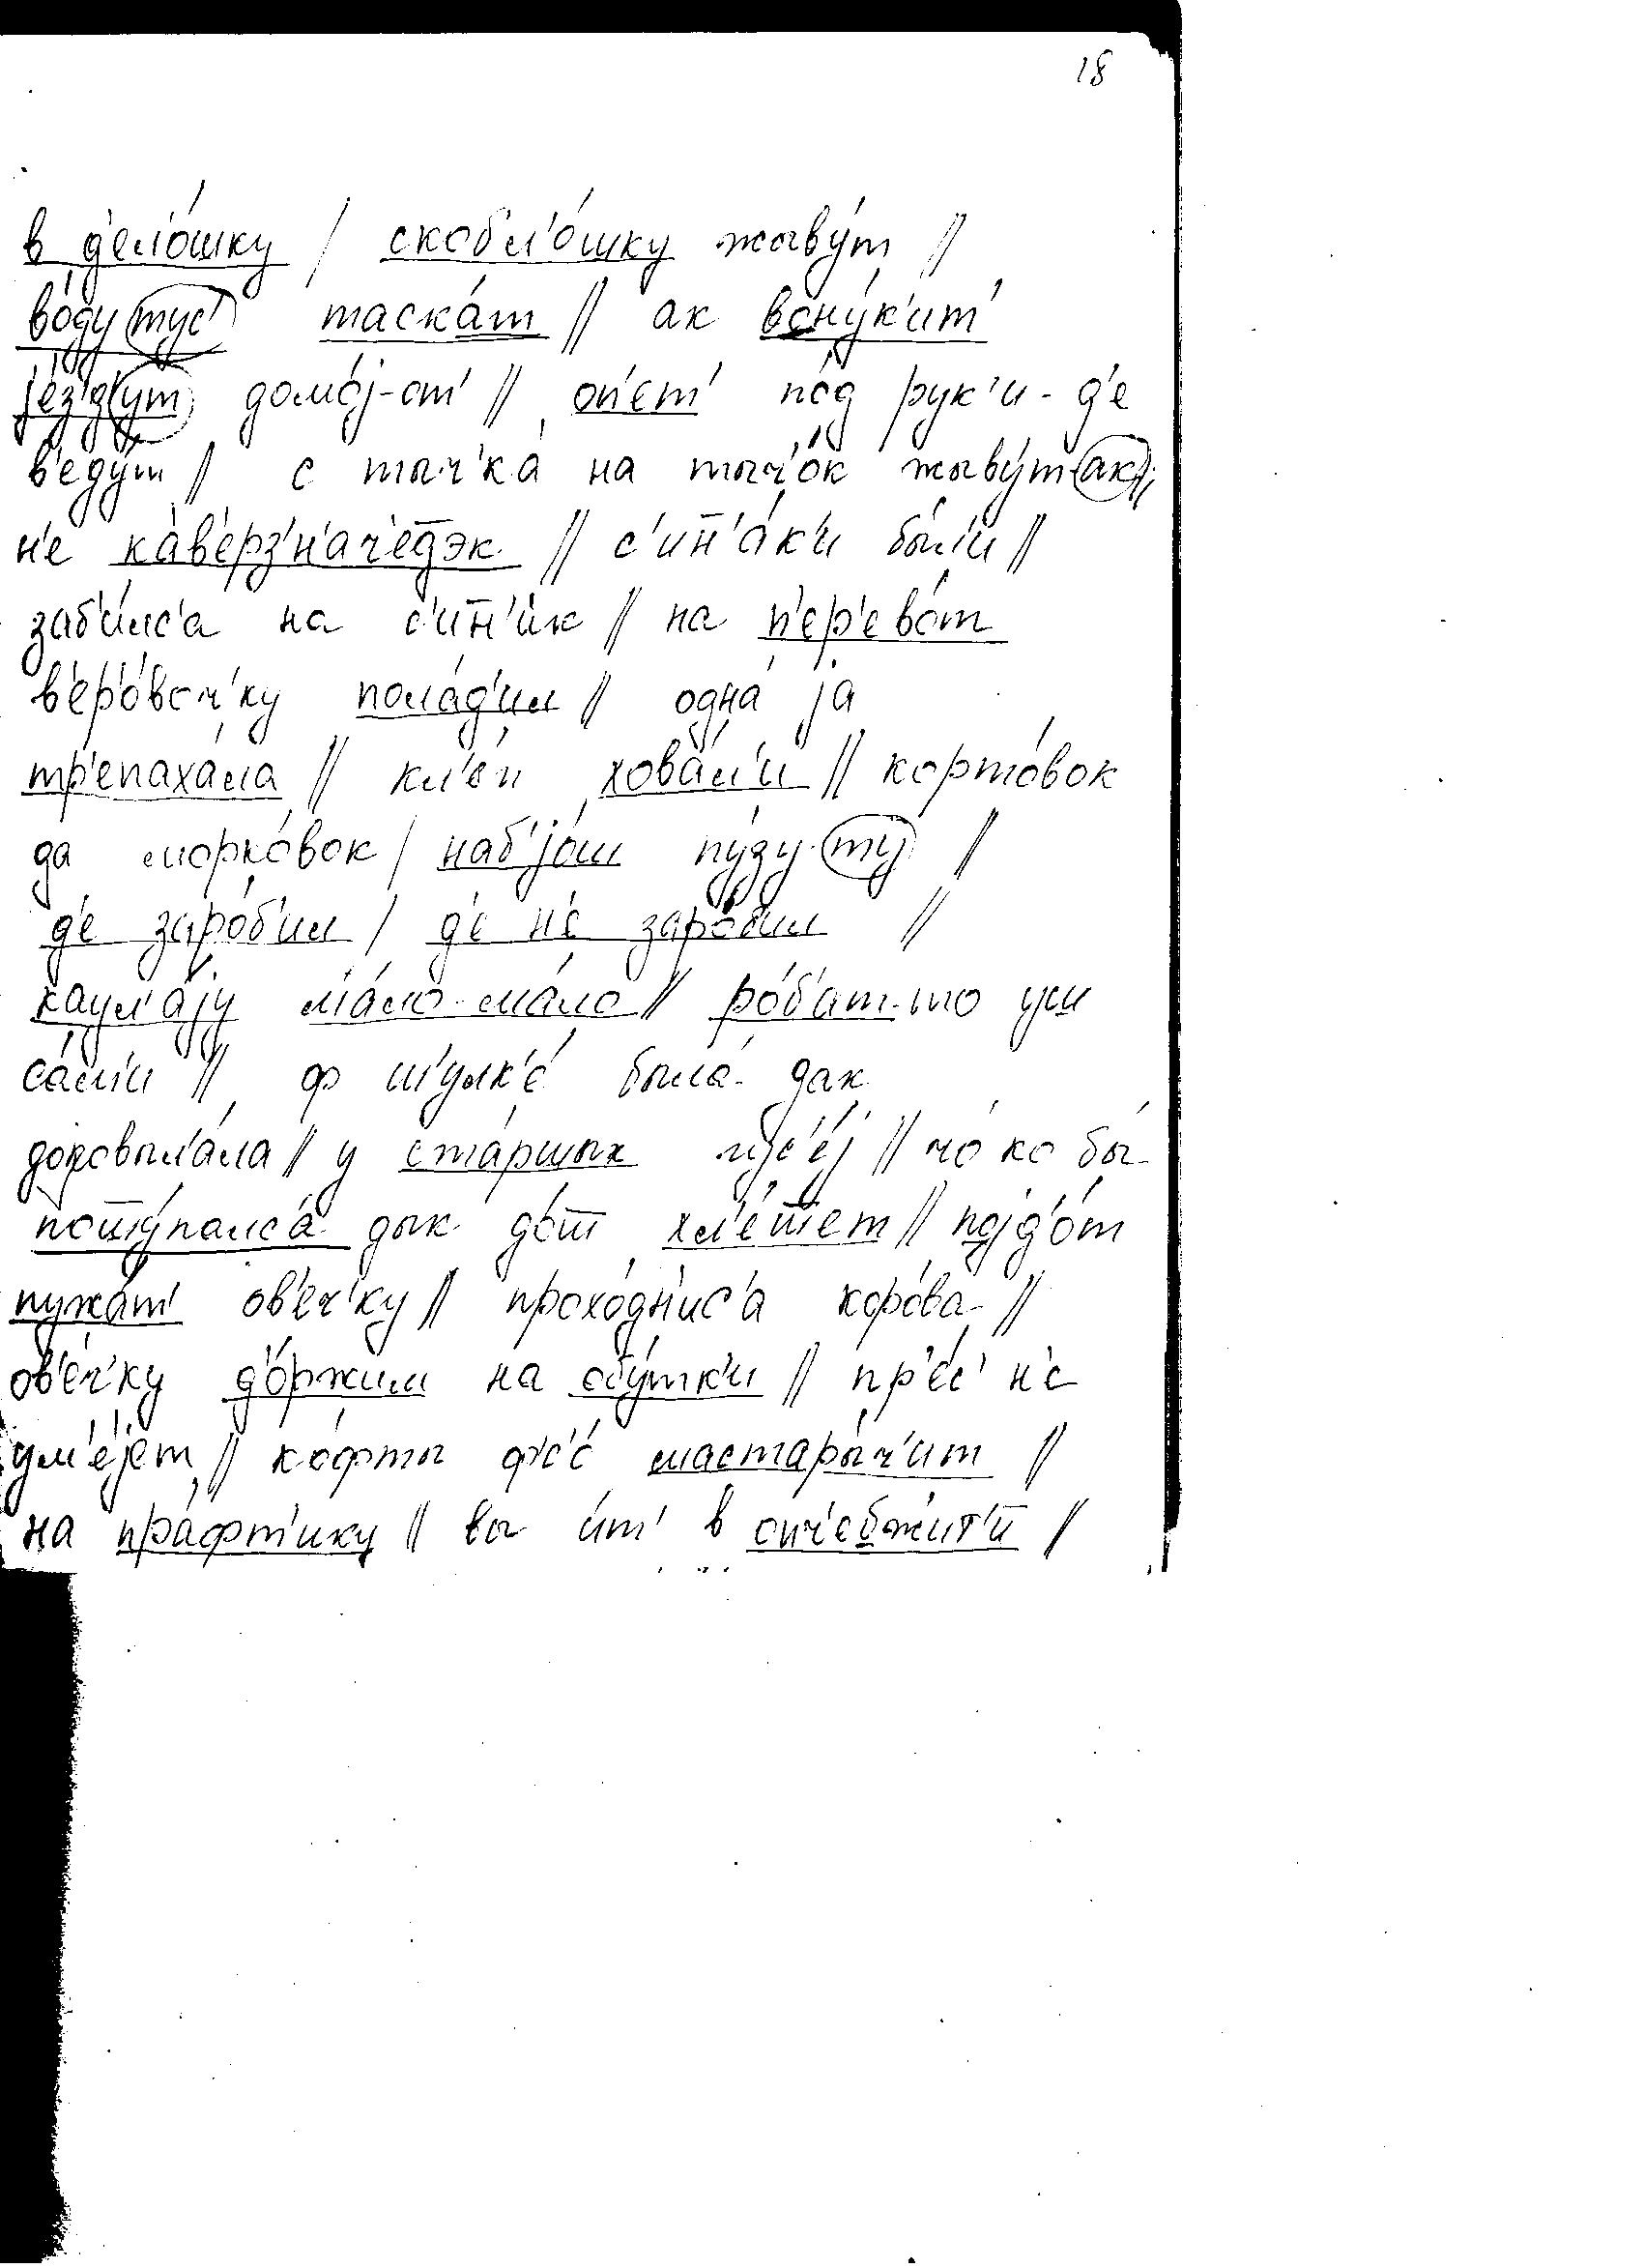 18
в д'ело́шку / скобл'о́шку жыву́т //
во́ду тус' таска́т // ак вону́к'ит'
jе́з'д'ут домо́j-от' // оп'ет' по́д рук'и-д'е
в'еду́т // с тыч'ка́ на тыч'о́к жыву́т ак //
н'е ка́в'ерз'н'ач'едэк // с'ин'а́к'и бы́л'и //
заб'и́лс'а на с'ин'и́к // на п'ер'ево́т
в'ер'о́воч'ку пола́д'ил // одна́ jа
тр'епаха́ла // кл'е́п хова́л'и // корто́вок
да морко́вок / наб'jо́ш пу́зу ту //
д'е заро́б'ил / д'е н'е заро́б'ил //
каул'а́jу ма́ло-ма́ло // ро́б'ат-то уш
са́м'и // ф шулк'е́ была́ дак
доповыл'а́ла // у ста́ршых мус'е́j // чо ко бы
пошту́палса дык до́т хл'е́шет // поjд'о́т
пужа́т' ов'еч'ку // прохо́дн'ис'а коро́ва //
ов'е́ч'ку д'о́ржим на обу́тк'и // пр'ес' н'е
ум'е́jет // ко́фты фс'о́ мастары́ч'ит //
на пра́фт'ику // вы ит' в опч'ебжи́т'и //